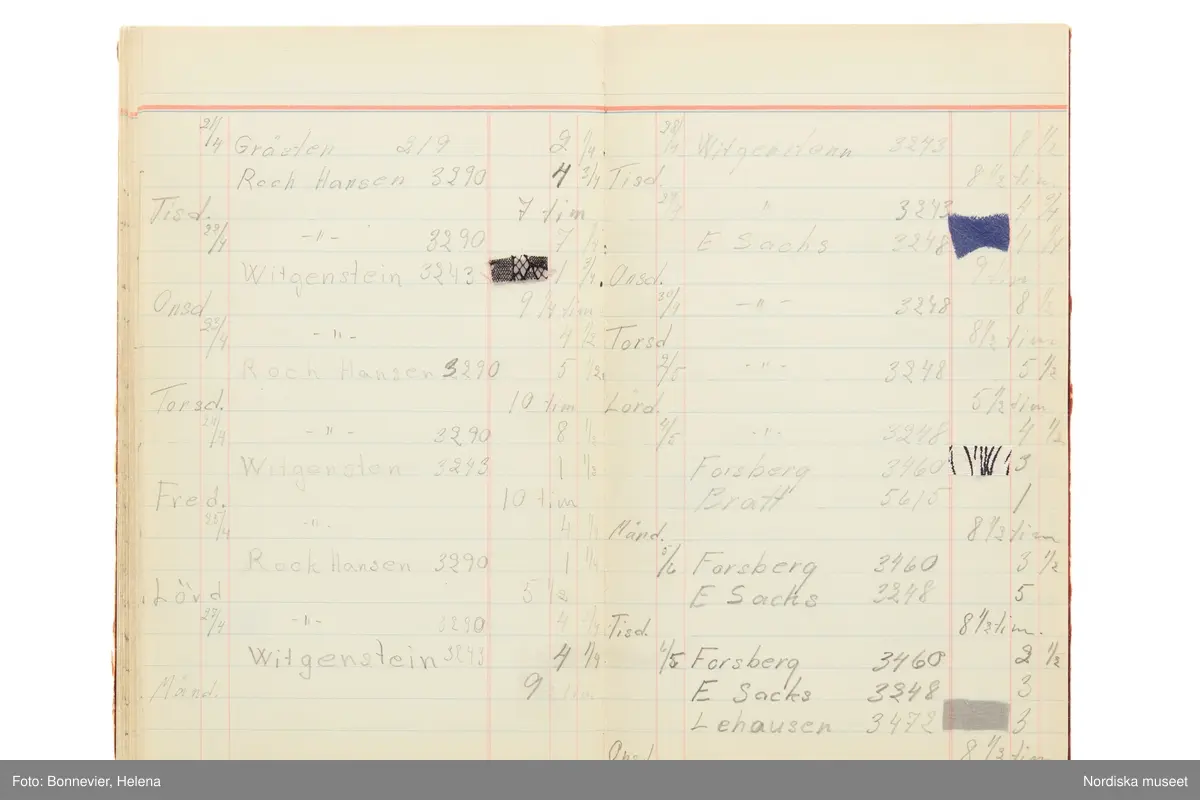 21/4 Gråsten 219 2 1/4
Roch Hansen 3290 4 3/4
Tisd. 7 tim
22/4 -"- 3290 7 1/4
Witgenstein 3243 1 3/4
Onsd 9 1/4 tim
23/4 -"- 4 1/2
Roch Hansen 3290 5 1/2
Torsd. 10 tim
24/4 -"- 3290 8 1/2
Witgensten 3243 1 1/2
Fred. 10 tim
25/4 -"- 4 1/4
Rock Hansen 3290 1 1/4
Lörd 5 1/2
27/4 -"- 3290 4
Witgenstein 3243 4 1/4
Månd. 9 tim
28/4 Witgenstann 3243 8 1/2
Tisd. 8 1/2 tim.
29/4 " 3243 4 3/4
E Sachs 3248 4 1/4
Onsd. 9 tim
30/4 -"- 3248 8 1/2
Torsd 8 1/2 tim.
2/5 -"- 3248 5 1/2
Lörd. 5 1/2 tim
4/5 -"- 3248 4 1/2
Forsberg 3460 3
Bratt 5615 1
Månd. 8 1/2 tim
5/6 Forsberg 3460 3 1/2
E Sachs 3248 5
Tisd. 8 1/2 tim.
6/5 Forsberg 3460 2 1/2
E Sacks 3248 3
Lehausen 3472 3
Onsd 8 1/2 tim
Foto: Bonnevier, Helena
Nordiska museet